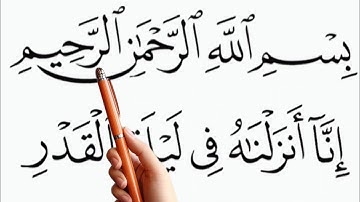 بِسْمِ ٱللَّهِ ٱلرَّحْمَٰنِ ٱلرَّحِيمِ
إِنَّآ أَنزَلْنَٰهُ فِى لَيْلَةِ ٱلْقَدْرِ